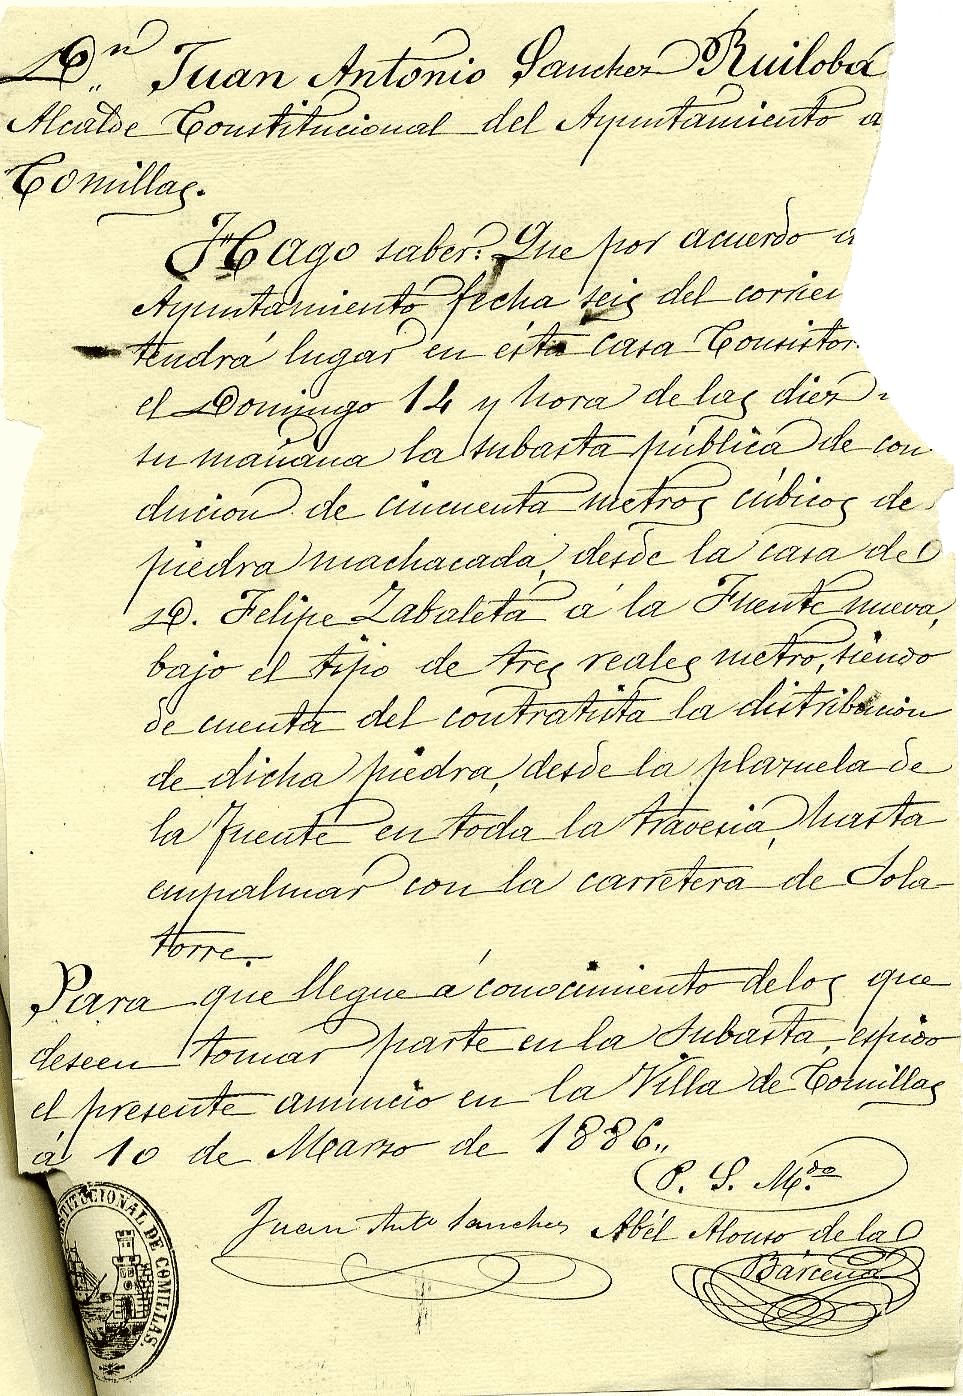 Dn. Juan Antonio Sanchez Ruiloba
Alcalde Constitucional del Ayuntamiento
Comillas.
Hago saber: Que por acuerdo
Ayuntamiento fecha seis del corrien
tendrá lugar en ésta casa Consistor
el Domingo 14 y hora de las diez
su mañana la subasta pública de con
ducion de cincuenta metros cúbicos de
piedra machacada, desde la casa de
D. Felipe Zabaleta á la Fuente nueva,
bajo el tipo de tres reales metro, siendo
de cuenta del contratista la distribucion
de dicha piedra, desde la plazuela de
la Fuente en toda la travesia, hasta
empalmar con la carretera de Sola-
torre.
Para que llegue á conocimiento de los que
deseen tomar parte en la subasta, espido
el presente anuncio en la Villa de Comillas
á 10 de Marzo de 1886.,
P. S. Mdo.
Juan Anto Sanchez Abél Alonso de la
Bárcena
STITUCIONAL DE COMILLAS.